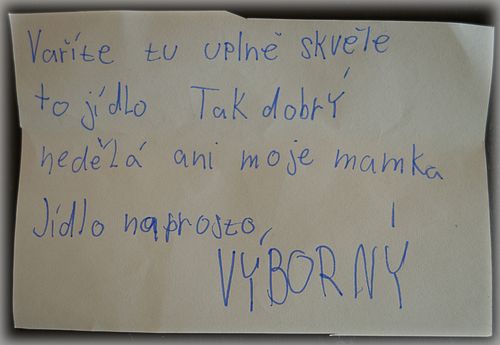 Vaříte tu uplně skvěle
to jídlo Tak dobrý
nedělá ani moje mamka
Jídlo naprosto,
VÝBORNÝ